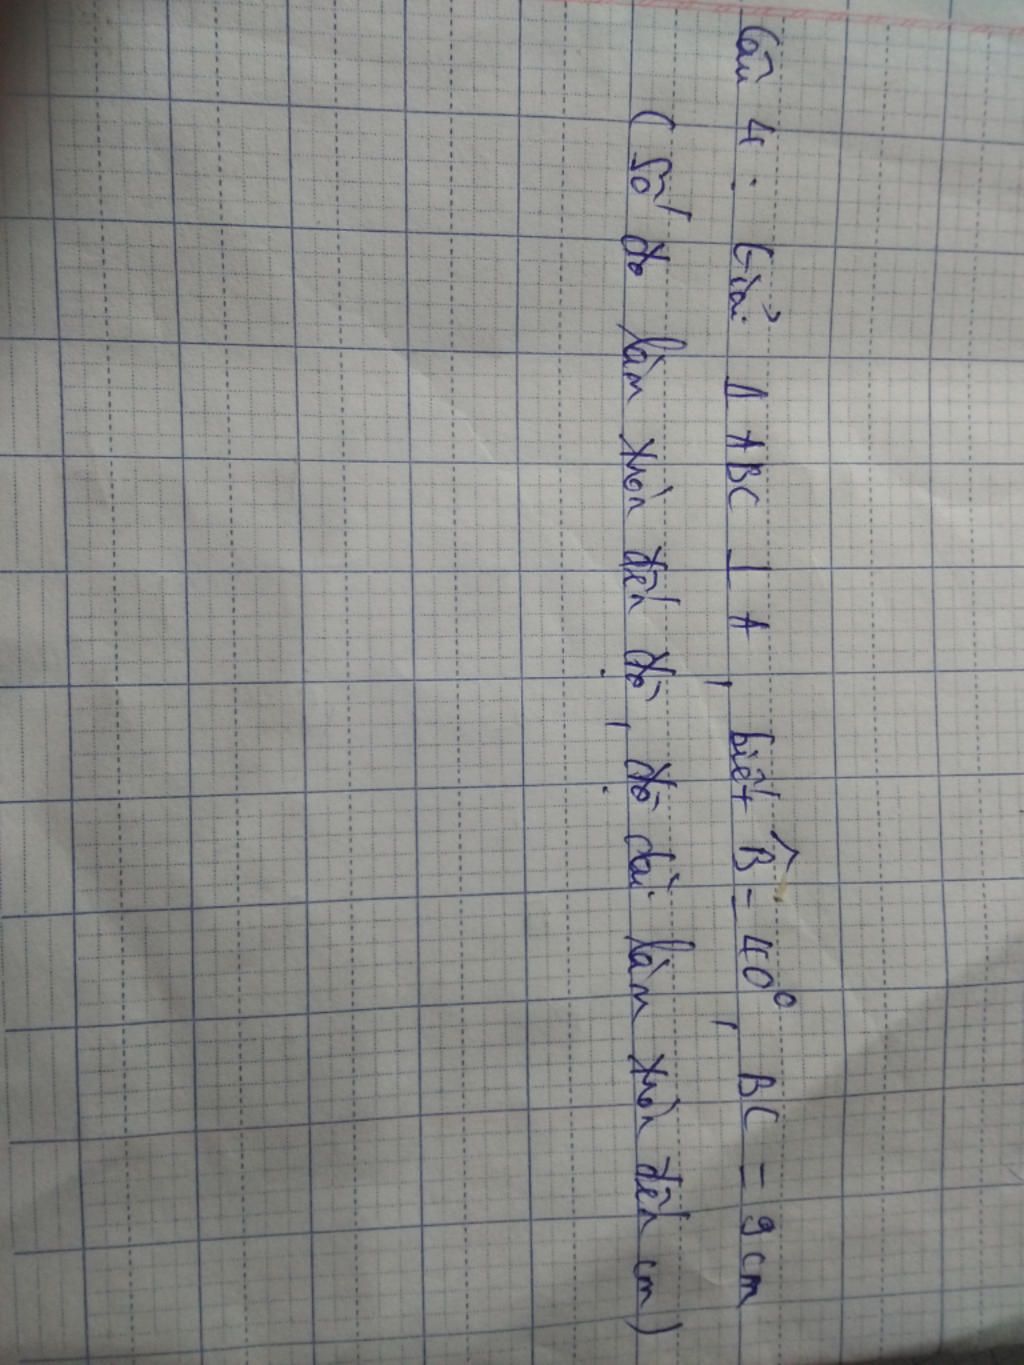 Câu 4 : Giải Δ ABC ⊥ A , biết B̂ = 40°, BC = 9cm
( Số đo làm tròn đến độ, độ dài làm tròn đến cm)